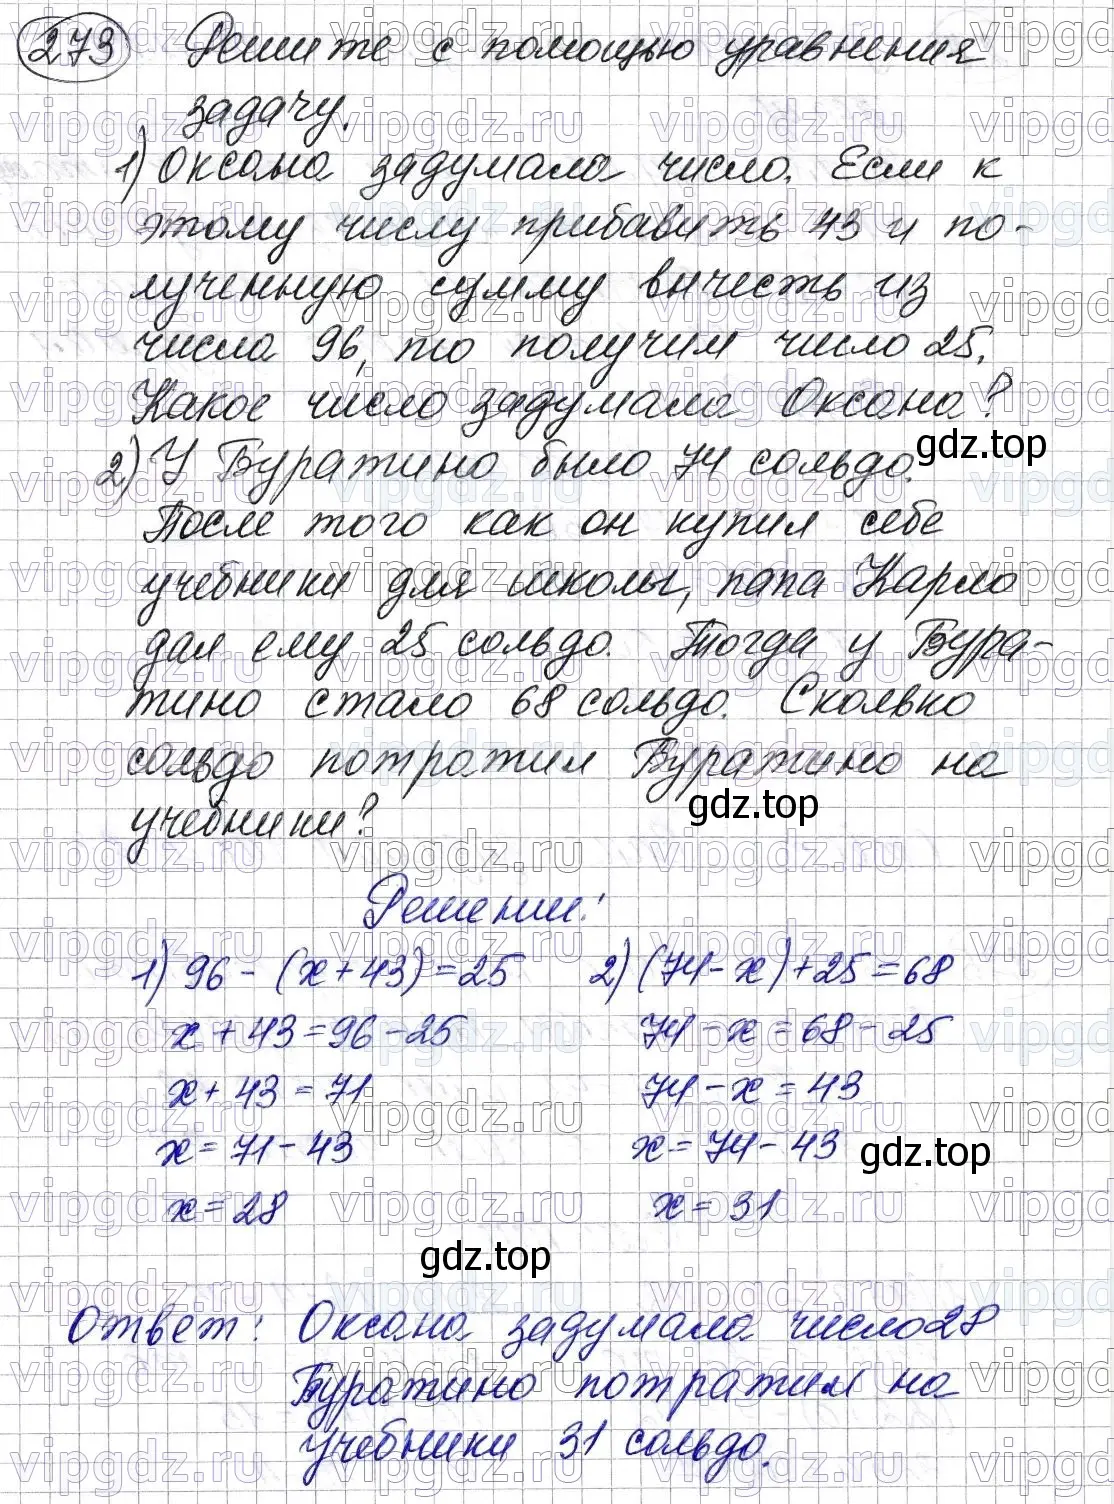 273 Решите с помощью уравнения
задачу.
1) Оксана задумала число. Если к
этому числу прибавить 43 и по-
лученную сумму вычесть из
числа 96, то получим число 25.
Какое число задумала Оксана?
gdz.top
2) У Буратино было 74 сольдо.
После того как он купил себе
учебники для школы, папа Карло
дал ему 25 сольдо. Тогда у Бура-
тино стало 68 сольдо. Сколько
сольдо потратил Буратино на
учебники?
gdz.top
Решение:
1) 96 - (x + 43) = 25 2) (74 - x) + 25 = 68
x + 43 = 96 - 25 74 - x = 68 - 25
x + 43 = 71 74 - x = 43
x = 71 - 43 x = 74 - 43
gdz.top
x = 28 x = 31
gdz.top
Ответ: Оксана задумала число 28
Буратино потратил на
учебники 31 сольдо.
vipgdz.ru